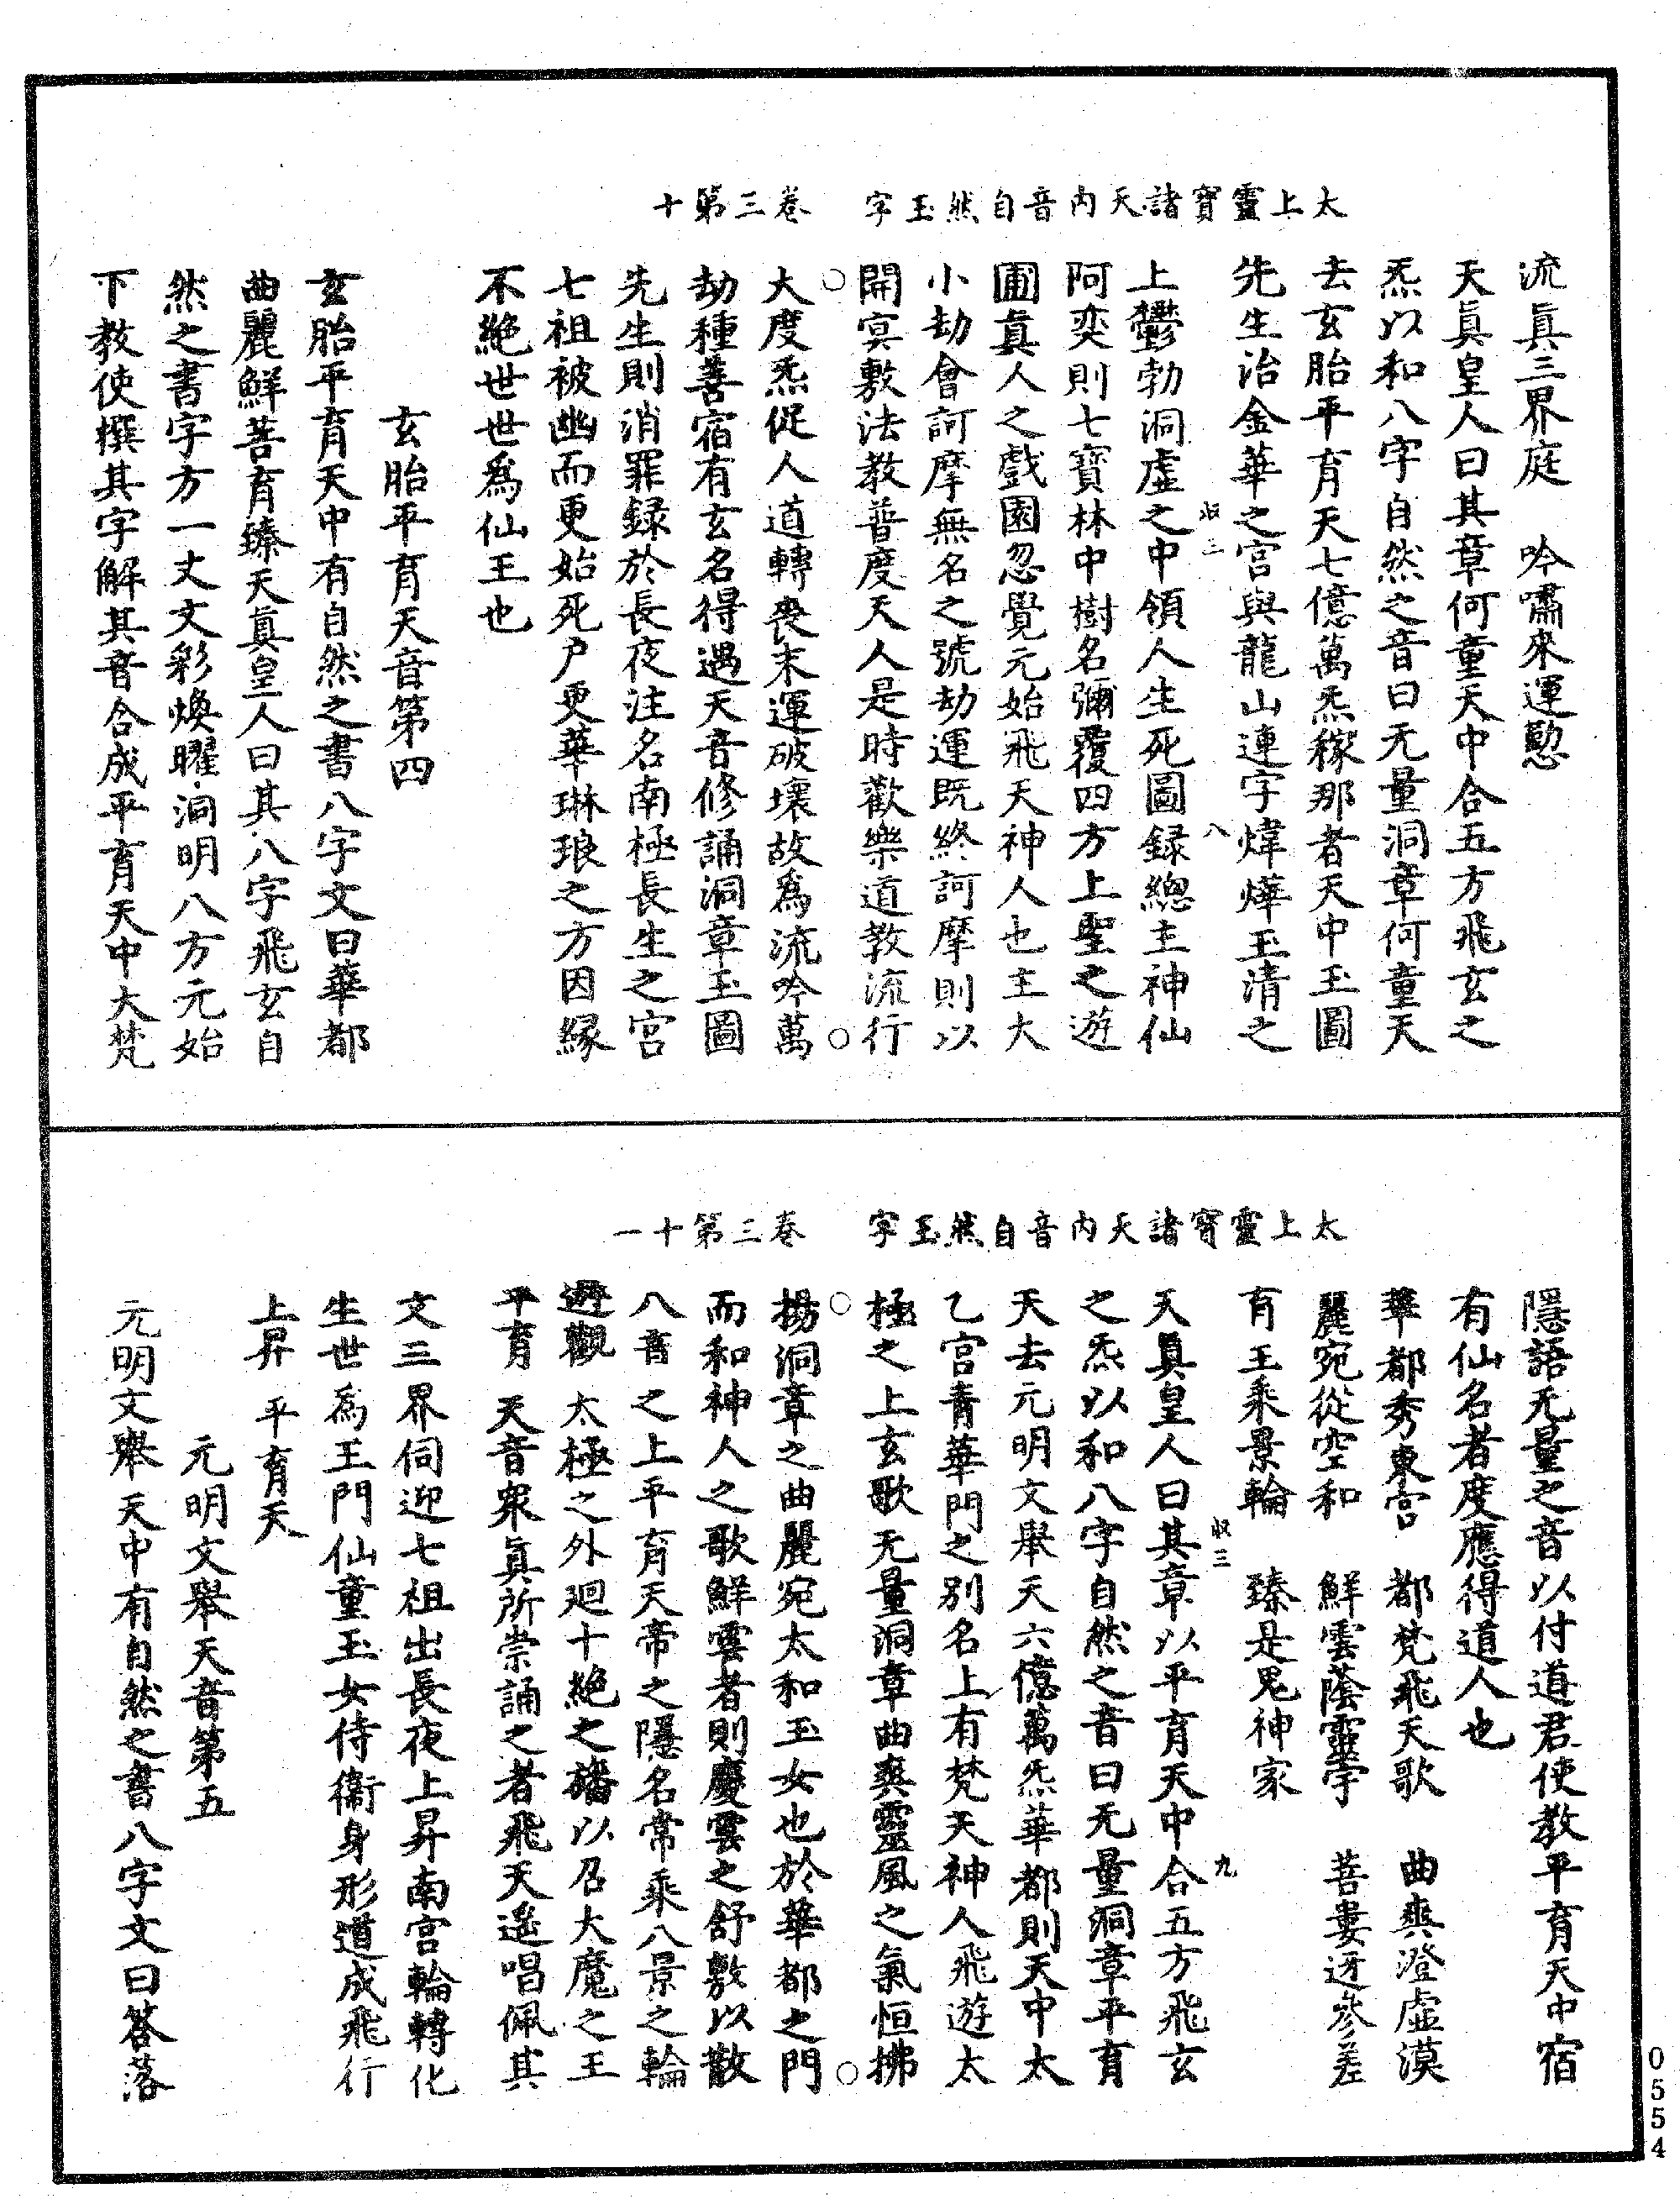 太上靈寶諸天內音自然玉字　卷三第十
流眞三界庭　吟嘯來運愆
天眞皇人曰其章何童天中合五方飛玄之
炁以和八字自然之音曰无量洞章何童天
去玄胎平育天七億萬炁稼那者天中玉圖
先生治金華之宮與龍山連字煒燁玉清之
收三　八
上鬱勃洞虛之中領人生死圖録總主神仙
阿奕則七寶林中樹名彌覆四方上聖之遊
圃眞人之戲園忽覺元始飛天神人也主大
小劫會訶摩無名之號劫運既終訶摩則以
開㝠敷法教普度天人是時歡樂道教流行
大度炁促人道轉喪末運破壞故爲流吟萬
劫種善宿有玄名得遇天音修誦洞章玉圖
先生則消罪録於長夜注名南極長生之宮
七祖被幽而更始死户更華琳琅之方因緣
不絶世世爲仙王也
玄胎平育天音第四
玄胎平育天中有自然之書八字文曰華都
曲麗鮮菩育臻天眞皇人曰其八字飛玄自
然之書字方一丈文彩煥曜洞明八方元始
下教使撰其字解其音合成平育天中大梵
太上靈寶諸天內音自然玉字　卷三第十一
隱語无量之音以付道君使教平育天中宿
有仙名者度應得道人也
華都秀東宮　都梵飛天歌　曲爽澄虛漠
麗宛從空和　鮮雲蔭靈宇　菩婁迓參差
育王乘景輪　臻是鬼神家
收三　九
天眞皇人曰其章以平育天中合五方飛玄
之炁以和八字自然之音曰无量洞章平育
天去元明文舉天六億萬炁華都則天中太
乙宮青華門之别名上有梵天神人飛遊太
極之上玄歌无量洞章曲爽靈風之氣恒拂
揚洞章之曲麗宛太和玉女也於華都之門
而和神人之歌鮮雲者則慶雲之舒敷以散
八音之上平育天帝之隱名常乘八景之輪
遊觀太極之外廻十絶之旛以召大魔之王
平育天音衆眞所崇誦之者飛天遥唱佩其
文三界伺迎七祖出長夜上昇南宮輪轉化
生世爲王門仙童玉女侍衛身形道成飛行
上昇平育天
元明文舉天音第五
元明文舉天中有自然之書八字文曰答落
0554